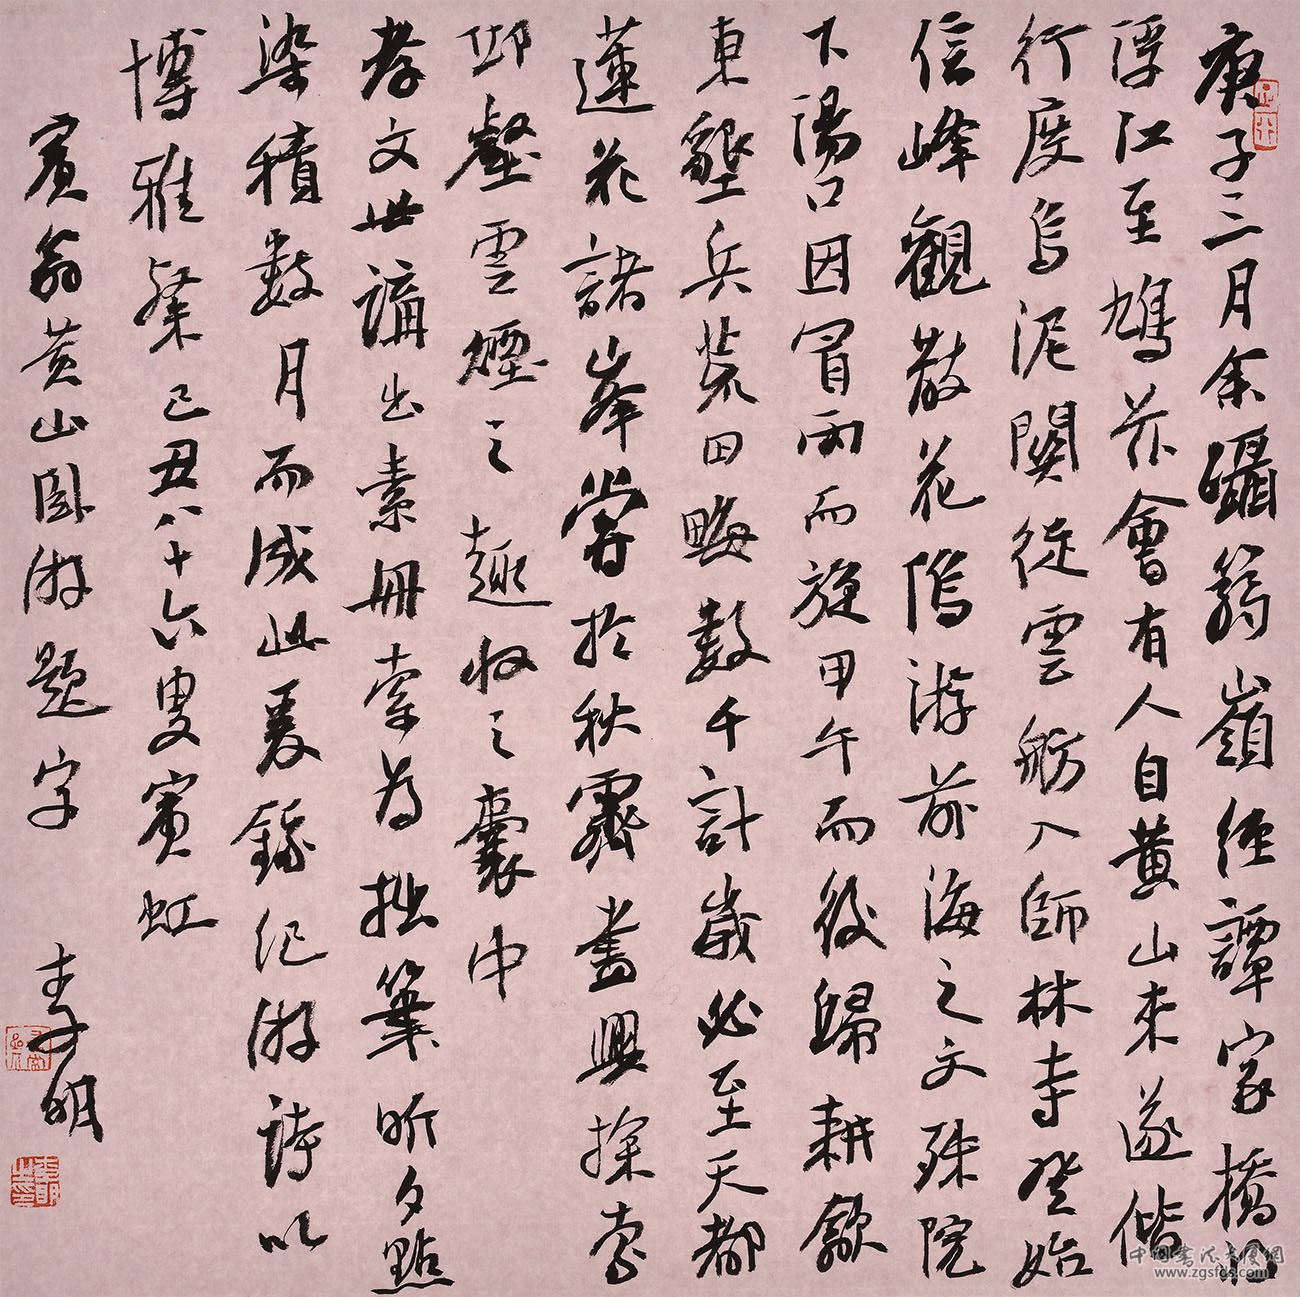 庚子三月余躡篛嶺經譚家橋將
浮江至鳩茲會有人自黃山來遂偕
行度烏泥關從雲舫入師林寺登始
信峰觀散花隖游前海之文殊院
下湯口因冒雨而旋甲午而後歸耕歙
東墾兵荒田畮數千計歲必至天都
蓮花諸峯嘗於秋霽盡興探索
邱壑雲煙之趣收之囊中
孝文世講出素冊索為拙筆昕夕點
染積數月而成此爰錄紀游詩以
博雅粲己丑八十六叟賓虹
賓翁黃山臥游題字
李明
www.zgsfds.com